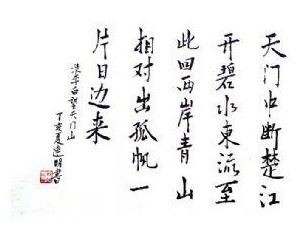 天门中断楚江
开碧水東流至
此回两岸青山
相对出孤帆一
片日边来
李白望天门山
丁亥夏明書